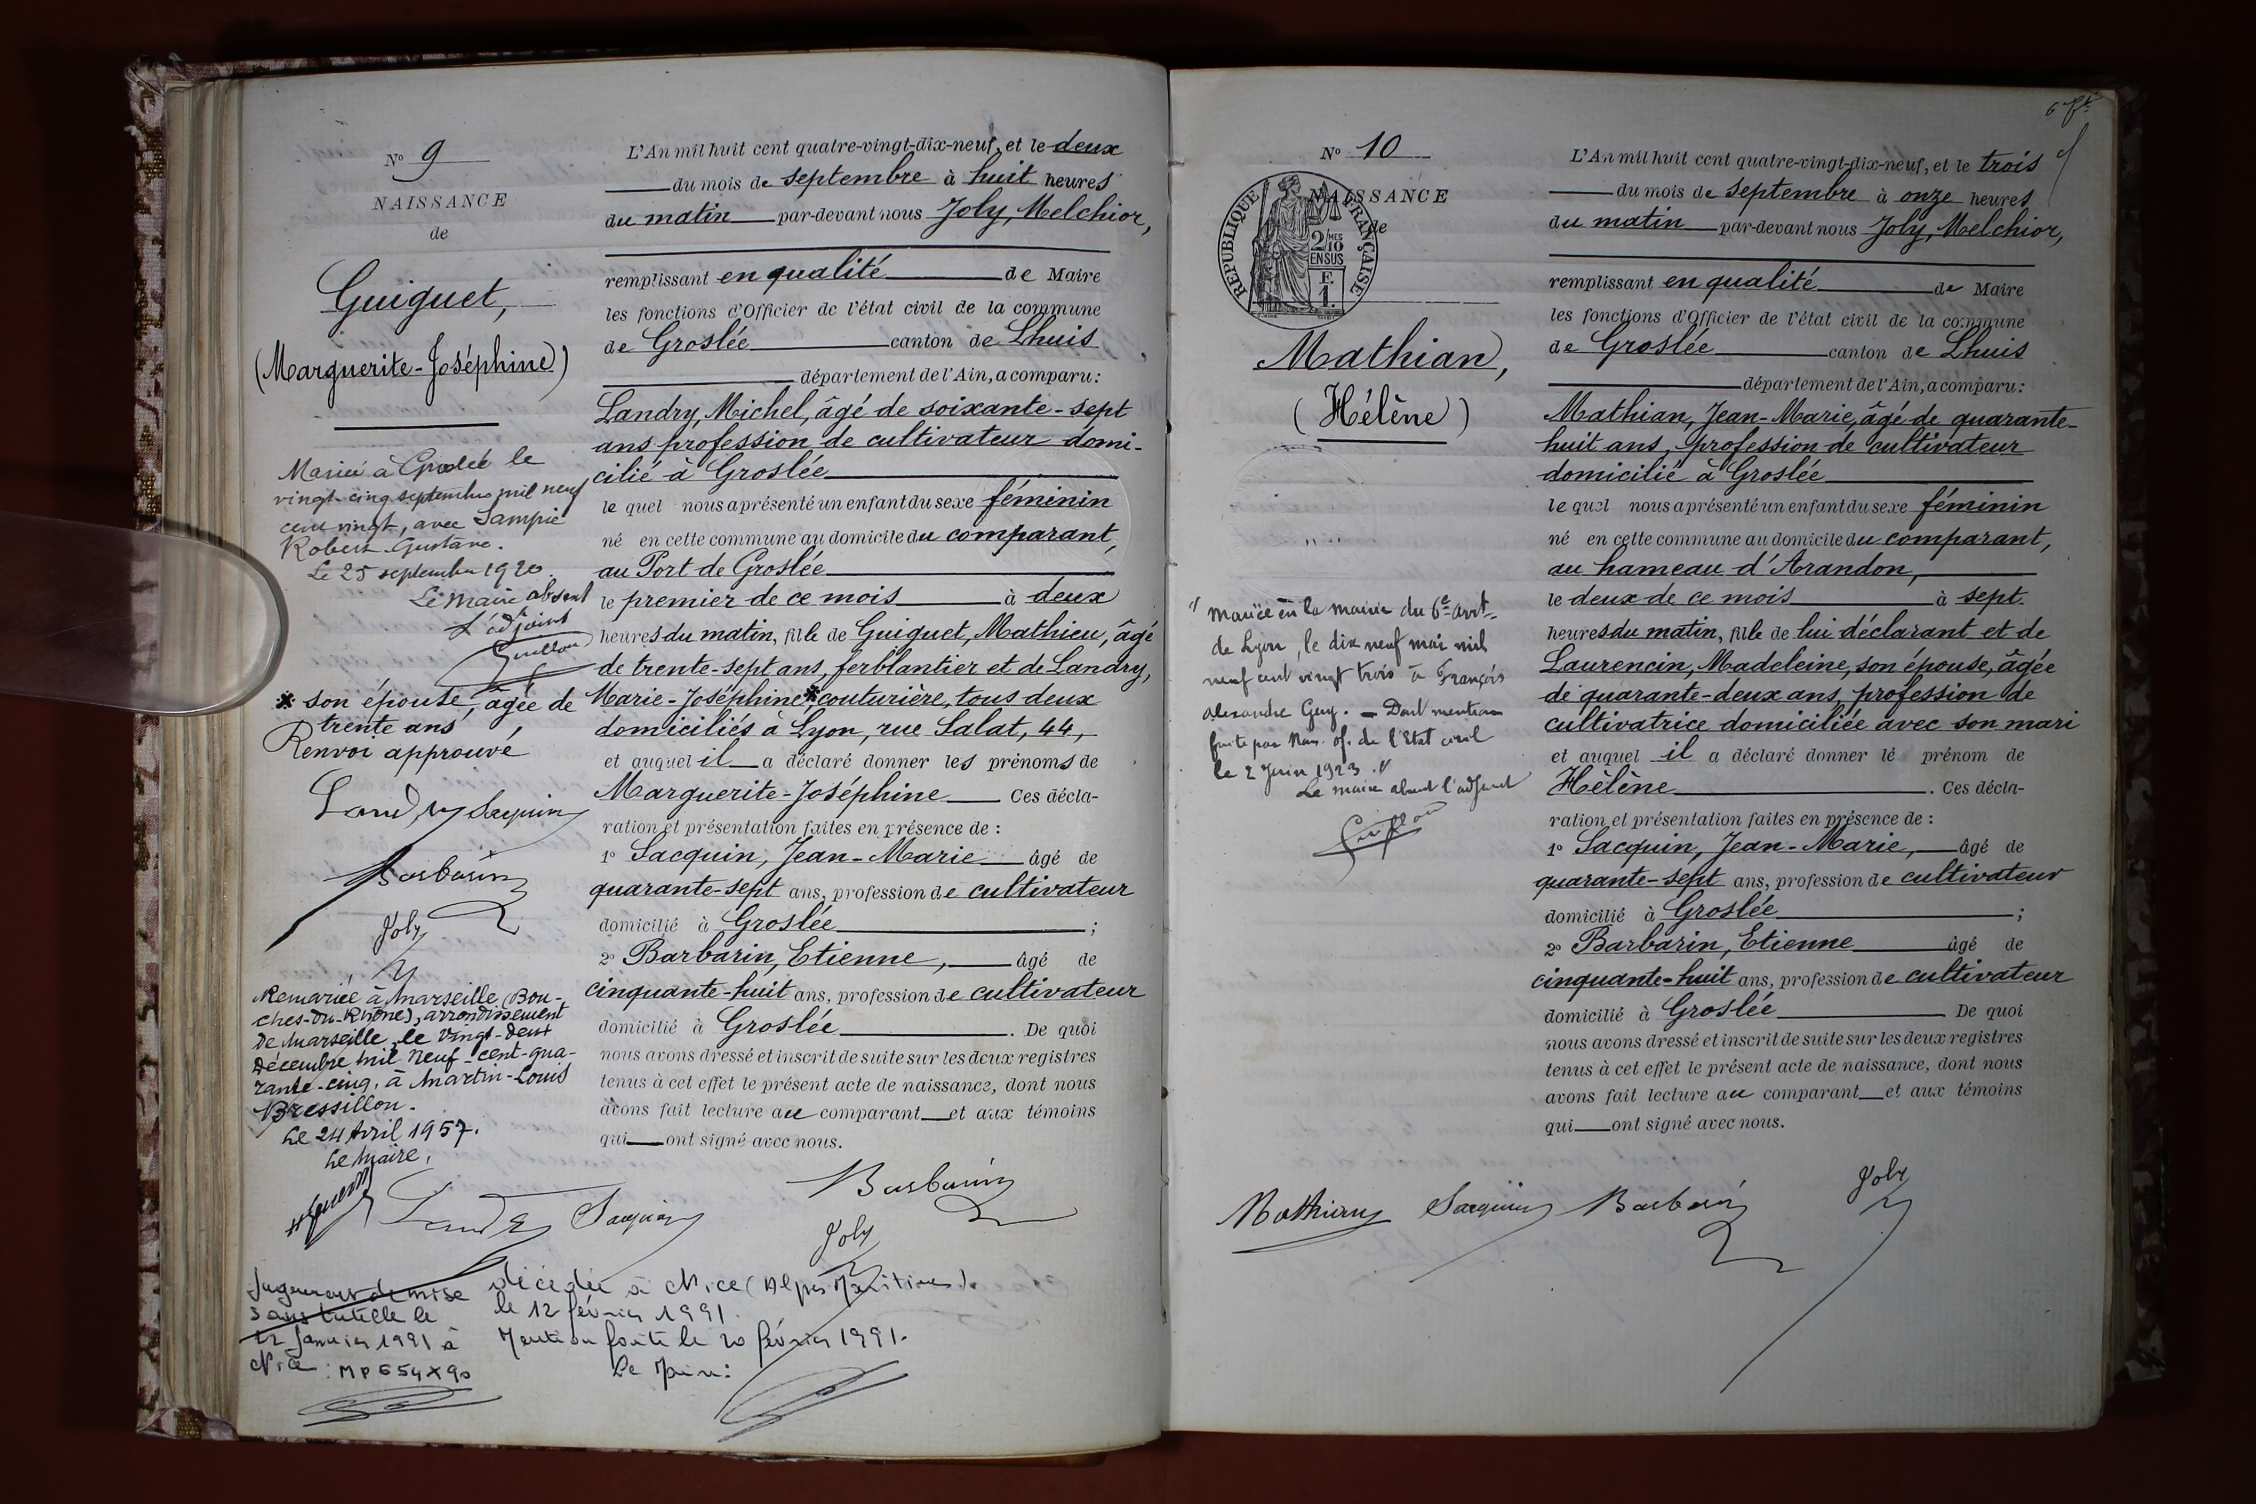 No 9
NAISSANCE
de
Guiguet,
(Marguerite-Joséphine)
Mariée à Groslée le
vingt-cinq septembre mil neuf
cent vingt, avec Sampié
Robert Gustave.
Le 25 septembre 1920.
Le Maire absent
L'adjoint
* son épouse, âgée de
trente ans
Renvoi approuvé
Landry Sacquin
Barbarin
Joly
Remariée à Marseille (Bou-
ches-du-Rhône), arrondissement
de Marseille, le vingt-deux
Décembre mil neuf-cent-qua-
rante-cinq, à Martin-Louis
Bressillon.
Le 24 Avril 1957.
Le Maire,
L'An mil huit cent quatre-vingt-dix-neuf, et le deux
du mois de septembre à huit heures
du matin par-devant nous Joly, Melchior,
remplissant en qualité de Maire
les fonctions d'Officier de l'état civil de la commune
de Groslée canton de Lhuis
département de l'Ain, a comparu:
Landry, Michel, âgé de soixante-sept
ans profession de cultivateur domi-
cilié à Groslée
le quel nous a présenté un enfant du sexe féminin
né en cette commune au domicile du comparant,
au Port de Groslée
le premier de ce mois à deux
heures du matin, fille de Guiguet, Mathieu, âgé
de trente-sept ans, ferblantier et de Landry,
Marie-Joséphine * couturière, tous deux
domiciliés à Lyon, rue Salat, 44,
et auquel il a déclaré donner les prénoms de
Marguerite-Joséphine Ces décla-
ration et présentation faites en présence de :
1° Sacquin, Jean-Marie âgé de
quarante-sept ans, profession de cultivateur
domicilié à Groslée ;
2° Barbarin, Etienne, âgé de
cinquante-huit ans, profession de cultivateur
domicilié à Groslée . De quoi
nous avons dressé et inscrit de suite sur les deux registres
tenus à cet effet le présent acte de naissance, dont nous
avons fait lecture au comparant et aux témoins
qui ont signé avec nous.
Barbarin
Landry Sacquin
Joly
Jugement de mise
sous tutelle le
22 Janvier 1991 à
Nice : MP 654 X 90
décédée à Nice (Alpes Maritimes).
le 12 février 1991.
Mention faite le 20 février 1991.
Le Maire:
6 ft.
No 10
NAISSANCE
de
RÉPUBLIQUE FRANÇAISE
2/10 MES
EN SUS
F.
1.
Mathian,
(Hélène)
Mariée en la mairie du 6e arrt
de Lyon, le dix neuf mai mil
neuf cent vingt trois à François
Alexandre Guy. - Dont mention
faite par Nous of. de l'Etat civil
le 2 Juin 1923.
Le maire absent l'adjoint
L'An mil huit cent quatre-vingt-dix-neuf, et le trois
du mois de septembre à onze heures
du matin par-devant nous Joly, Melchior,
remplissant en qualité de Maire
les fonctions d'Officier de l'état civil de la commune
de Groslée canton de Lhuis
département de l'Ain, a comparu:
Mathian, Jean-Marie, âgé de quarante-
huit ans, profession de cultivateur
domicilié à Groslée
le quel nous a présenté un enfant du sexe féminin
né en cette commune au domicile du comparant,
au hameau d'Arandon,
le deux de ce mois à sept
heures du matin, fille de lui déclarant et de
Laurencin, Madeleine, son épouse, âgée
de quarante-deux ans, profession de
cultivatrice domiciliée avec son mari
et auquel il a déclaré donner le prénom de
Hélène . Ces décla-
ration et présentation faites en présence de :
1° Sacquin, Jean-Marie, âgé de
quarante-sept ans, profession de cultivateur
domicilié à Groslée ;
2° Barbarin, Etienne âgé de
cinquante-huit ans, profession de cultivateur
domicilié à Groslée De quoi
nous avons dressé et inscrit de suite sur les deux registres
tenus à cet effet le présent acte de naissance, dont nous
avons fait lecture au comparant et aux témoins
qui ont signé avec nous.
Mathian Sacquin Barbarin Joly